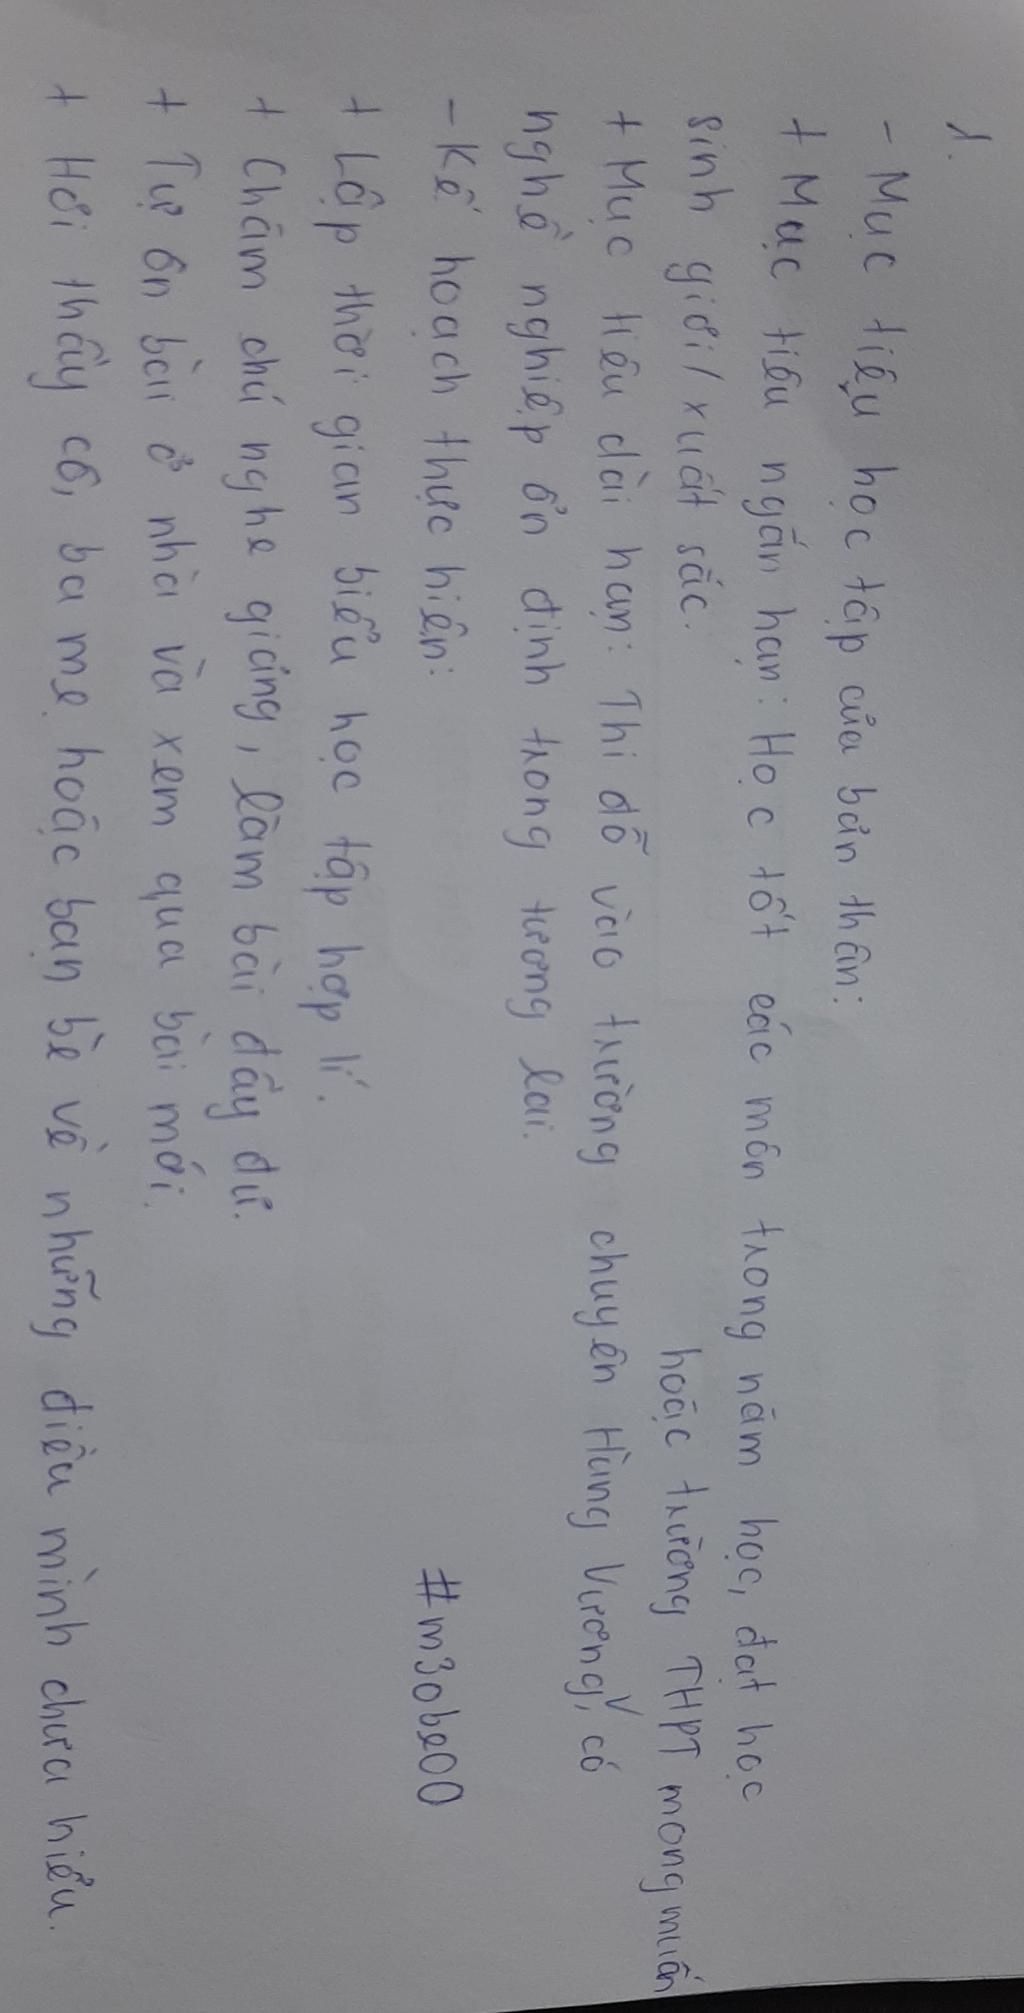 1.
- Mục tiêu học tập của bản thân:
+ Mục tiêu ngắn hạn: Học tốt các môn trong năm học, đạt học
sinh giỏi / xuất sắc.
hoặc trường THPT mong muốn
+ Mục tiêu dài hạn: Thi đỗ vào trường chuyên Hùng Vương, có
nghề nghiệp ổn định trong tương lai.
- Kế hoạch thực hiện:
#m3obe00
+ Lập thời gian biểu học tập hợp lí.
+ Chăm chú nghe giảng, làm bài đầy đủ.
+ Tự ôn bài ở nhà và xem qua bài mới.
+ Hỏi thầy cô, ba mẹ hoặc bạn bè về những điều mình chưa hiểu.